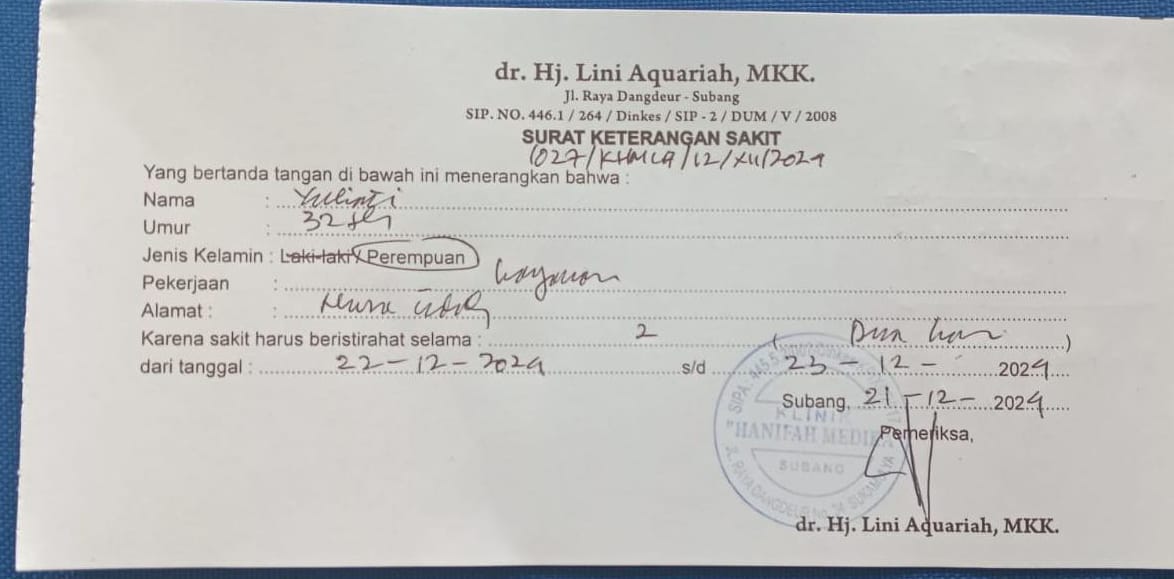 dr. Hj. Lini Aquariah, MKK.
Jl. Raya Dangdeur - Subang
SIP. NO. 446.1 / 264 / Dinkes / SIP - 2 / DUM / V / 2008
SURAT KETERANGAN SAKIT
1027/KHMLA/12/XII/2024
Yang bertanda tangan di bawah ini menerangkan bahwa :
Nama : Yulianti
Umur : 32 th
Jenis Kelamin : Laki-laki / Perempuan
Pekerjaan : Karyawan
Alamat :
Karena sakit harus beristirahat selama : 2 ( Dua hari )
dari tanggal : 22-12-2024 s/d 23-12-2024
Subang, 21-12-2024
Pemeriksa,
KLINIK
"HANIFAH MEDIKA"
SUBANG
dr. Hj. Lini Aquariah, MKK.